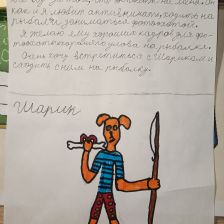 как и я любит активничать, ходить на
рыбалку, заниматься фотоохотой.
Я желаю ему хороших кадров для фо-
тоохоты и хорошего улова на рыбалке.
Очень хочу встретиться с Шариком и
сходить с ним на рыбалку.
Шарик